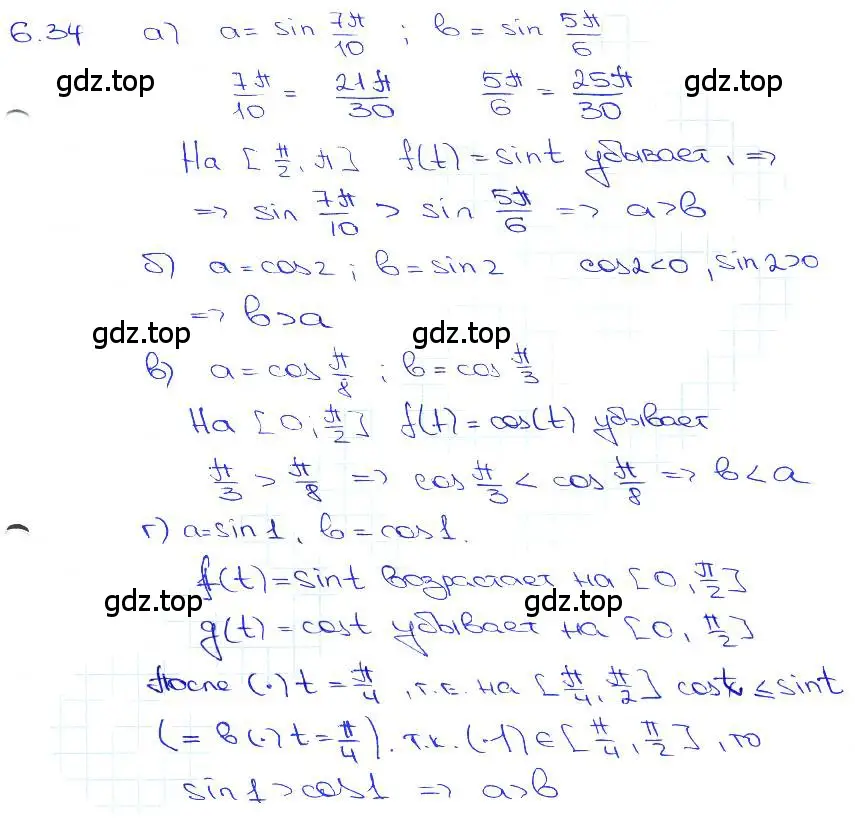 6.34 а) a = sin 7π/10 ; b = sin 5π/6
7π/10 = 21π/30 5π/6 = 25π/30
gdz.top gdz.top
На [π/2, π] f(t) = sin t убывает, =>
=> sin 7π/10 > sin 5π/6 => a > b
б) a = cos 2 ; b = sin 2 cos 2 < 0, sin 2 > 0
=> b > a
gdz.top gdz.top
в) a = cos π/8 ; b = cos π/3
На [0; π/2] f(t) = cos(t) убывает
π/3 > π/8 => cos π/3 < cos π/8 => b < a
г) a = sin 1, b = cos 1.
f(t) = sin t возрастает на [0, π/2]
gdz.top gdz.top
g(t) = cos t убывает на [0, π/2]
После (·) t = π/4, т.е. на [π/4, π/2] cos t ≤ sin t
(= в (·) t = π/4). т.к. (·1) ∈ [π/4, π/2], то
sin 1 > cos 1 => a > b